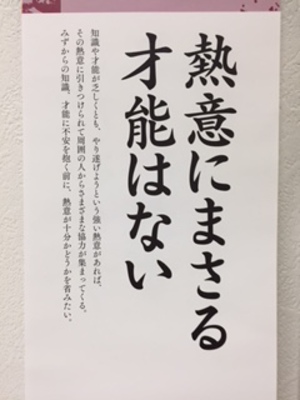 熱意にまさる
才能はない
知識や才能が乏しくとも、やり遂げようという強い熱意があれば、
その熱意に引きつけられて周囲の人からさまざまな協力が集まってくる。
みずからの知識、才能に不安を抱く前に、熱意が十分かどうかを省みたい。